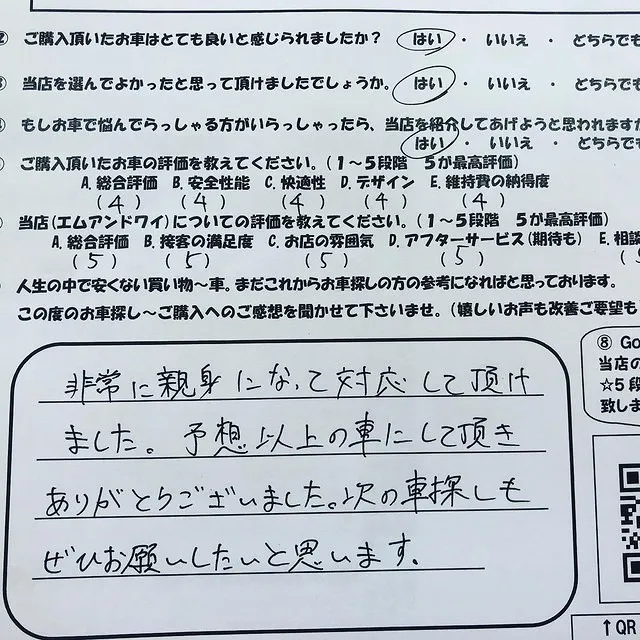 ② ご購入頂いたお車はとても良いと感じられましたか? はい ・ いいえ ・ どちらでも
当店を選んでよかったと思って頂けましたでしょうか。 はい ・ いいえ ・ どちらでも
もしお車で悩んでらっしゃる方がいらっしゃったら、当店を紹介してあげようと思われますか
はい ・ いいえ ・ どちらでも
ご購入頂いたお車の評価を教えてください。(1~5段階 5が最高評価)
A.総合評価 B.安全性能 C.快適性 D.デザイン E.維持費の納得度
(4) (4) (4) (4) (4)
当店(エムアンドワイ)についての評価を教えてください。(1~5段階 5が最高評価)
A.総合評価 B.接客の満足度 C.お店の雰囲気 D.アフターサービス(期待も) E.相談
(5) (5) (5) (5) (5
人生の中で安くない買い物~車。まだこれからお車探しの方の参考になればと思っております。
この度のお車探し~ご購入へのご感想を聞かせて下さいませ。(嬉しいお声も改善ご要望も
非常に親身になって対応して頂け
ました。予想以上の車にして頂き
ありがとうございました。次の車探しも
ぜひお願いしたいと思います。
⑧ Go
当店の
☆5段
致しま
↑QR